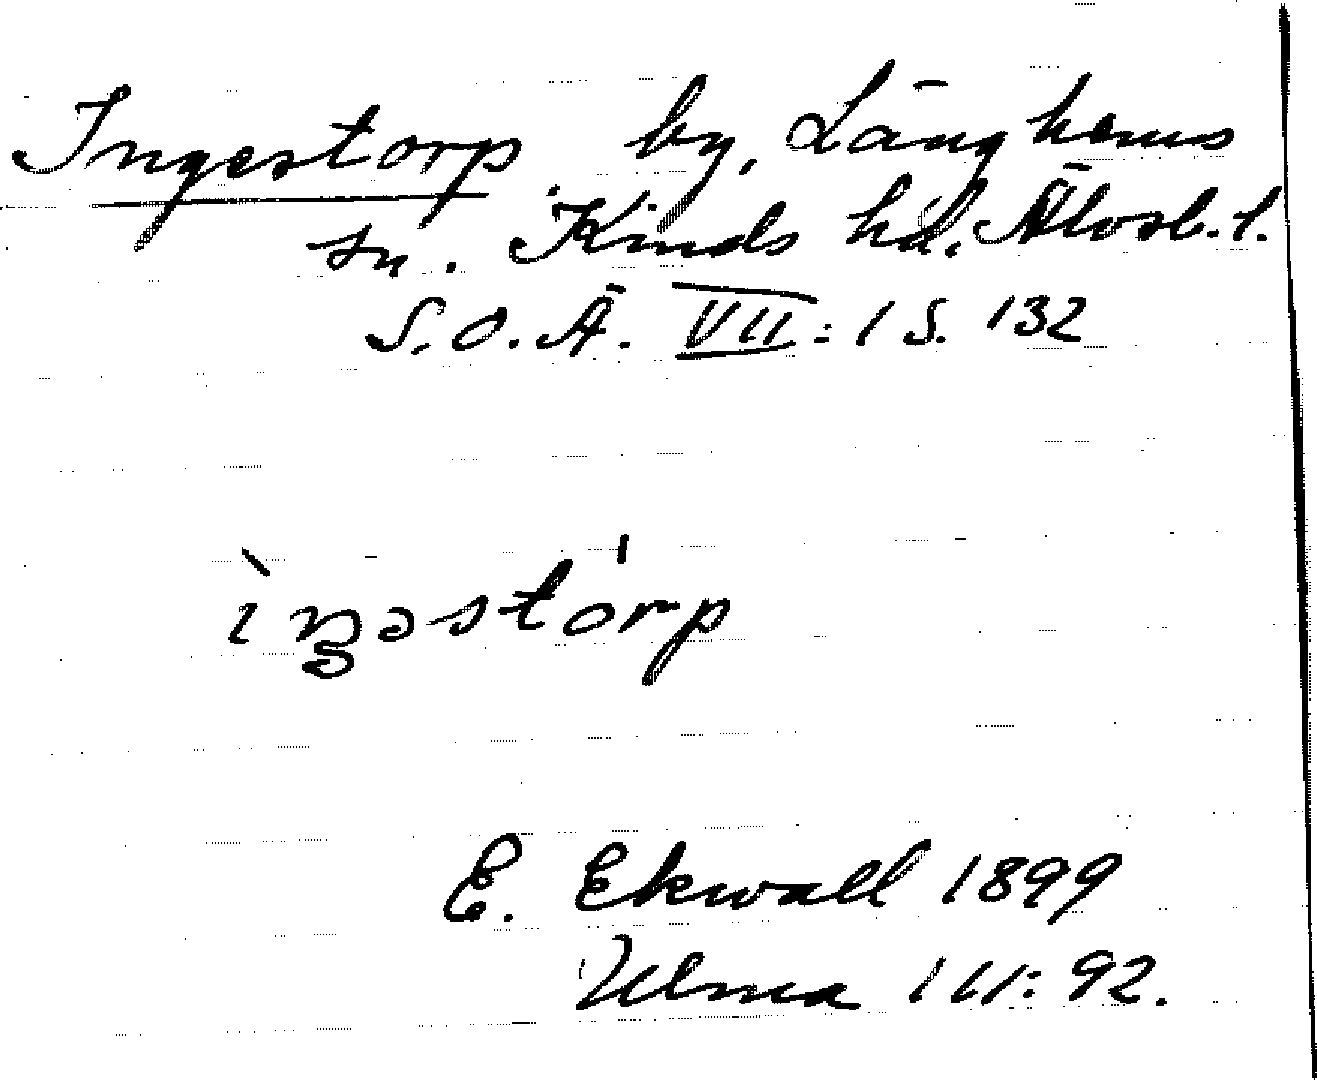 Ingestorp by, Länghems
sn. Kinds hd, Älvsb. l.
S.O.Ä. VII:1 S. 132
ìŋəstórp
E. Ekwall 1899
Ulma 111:92.